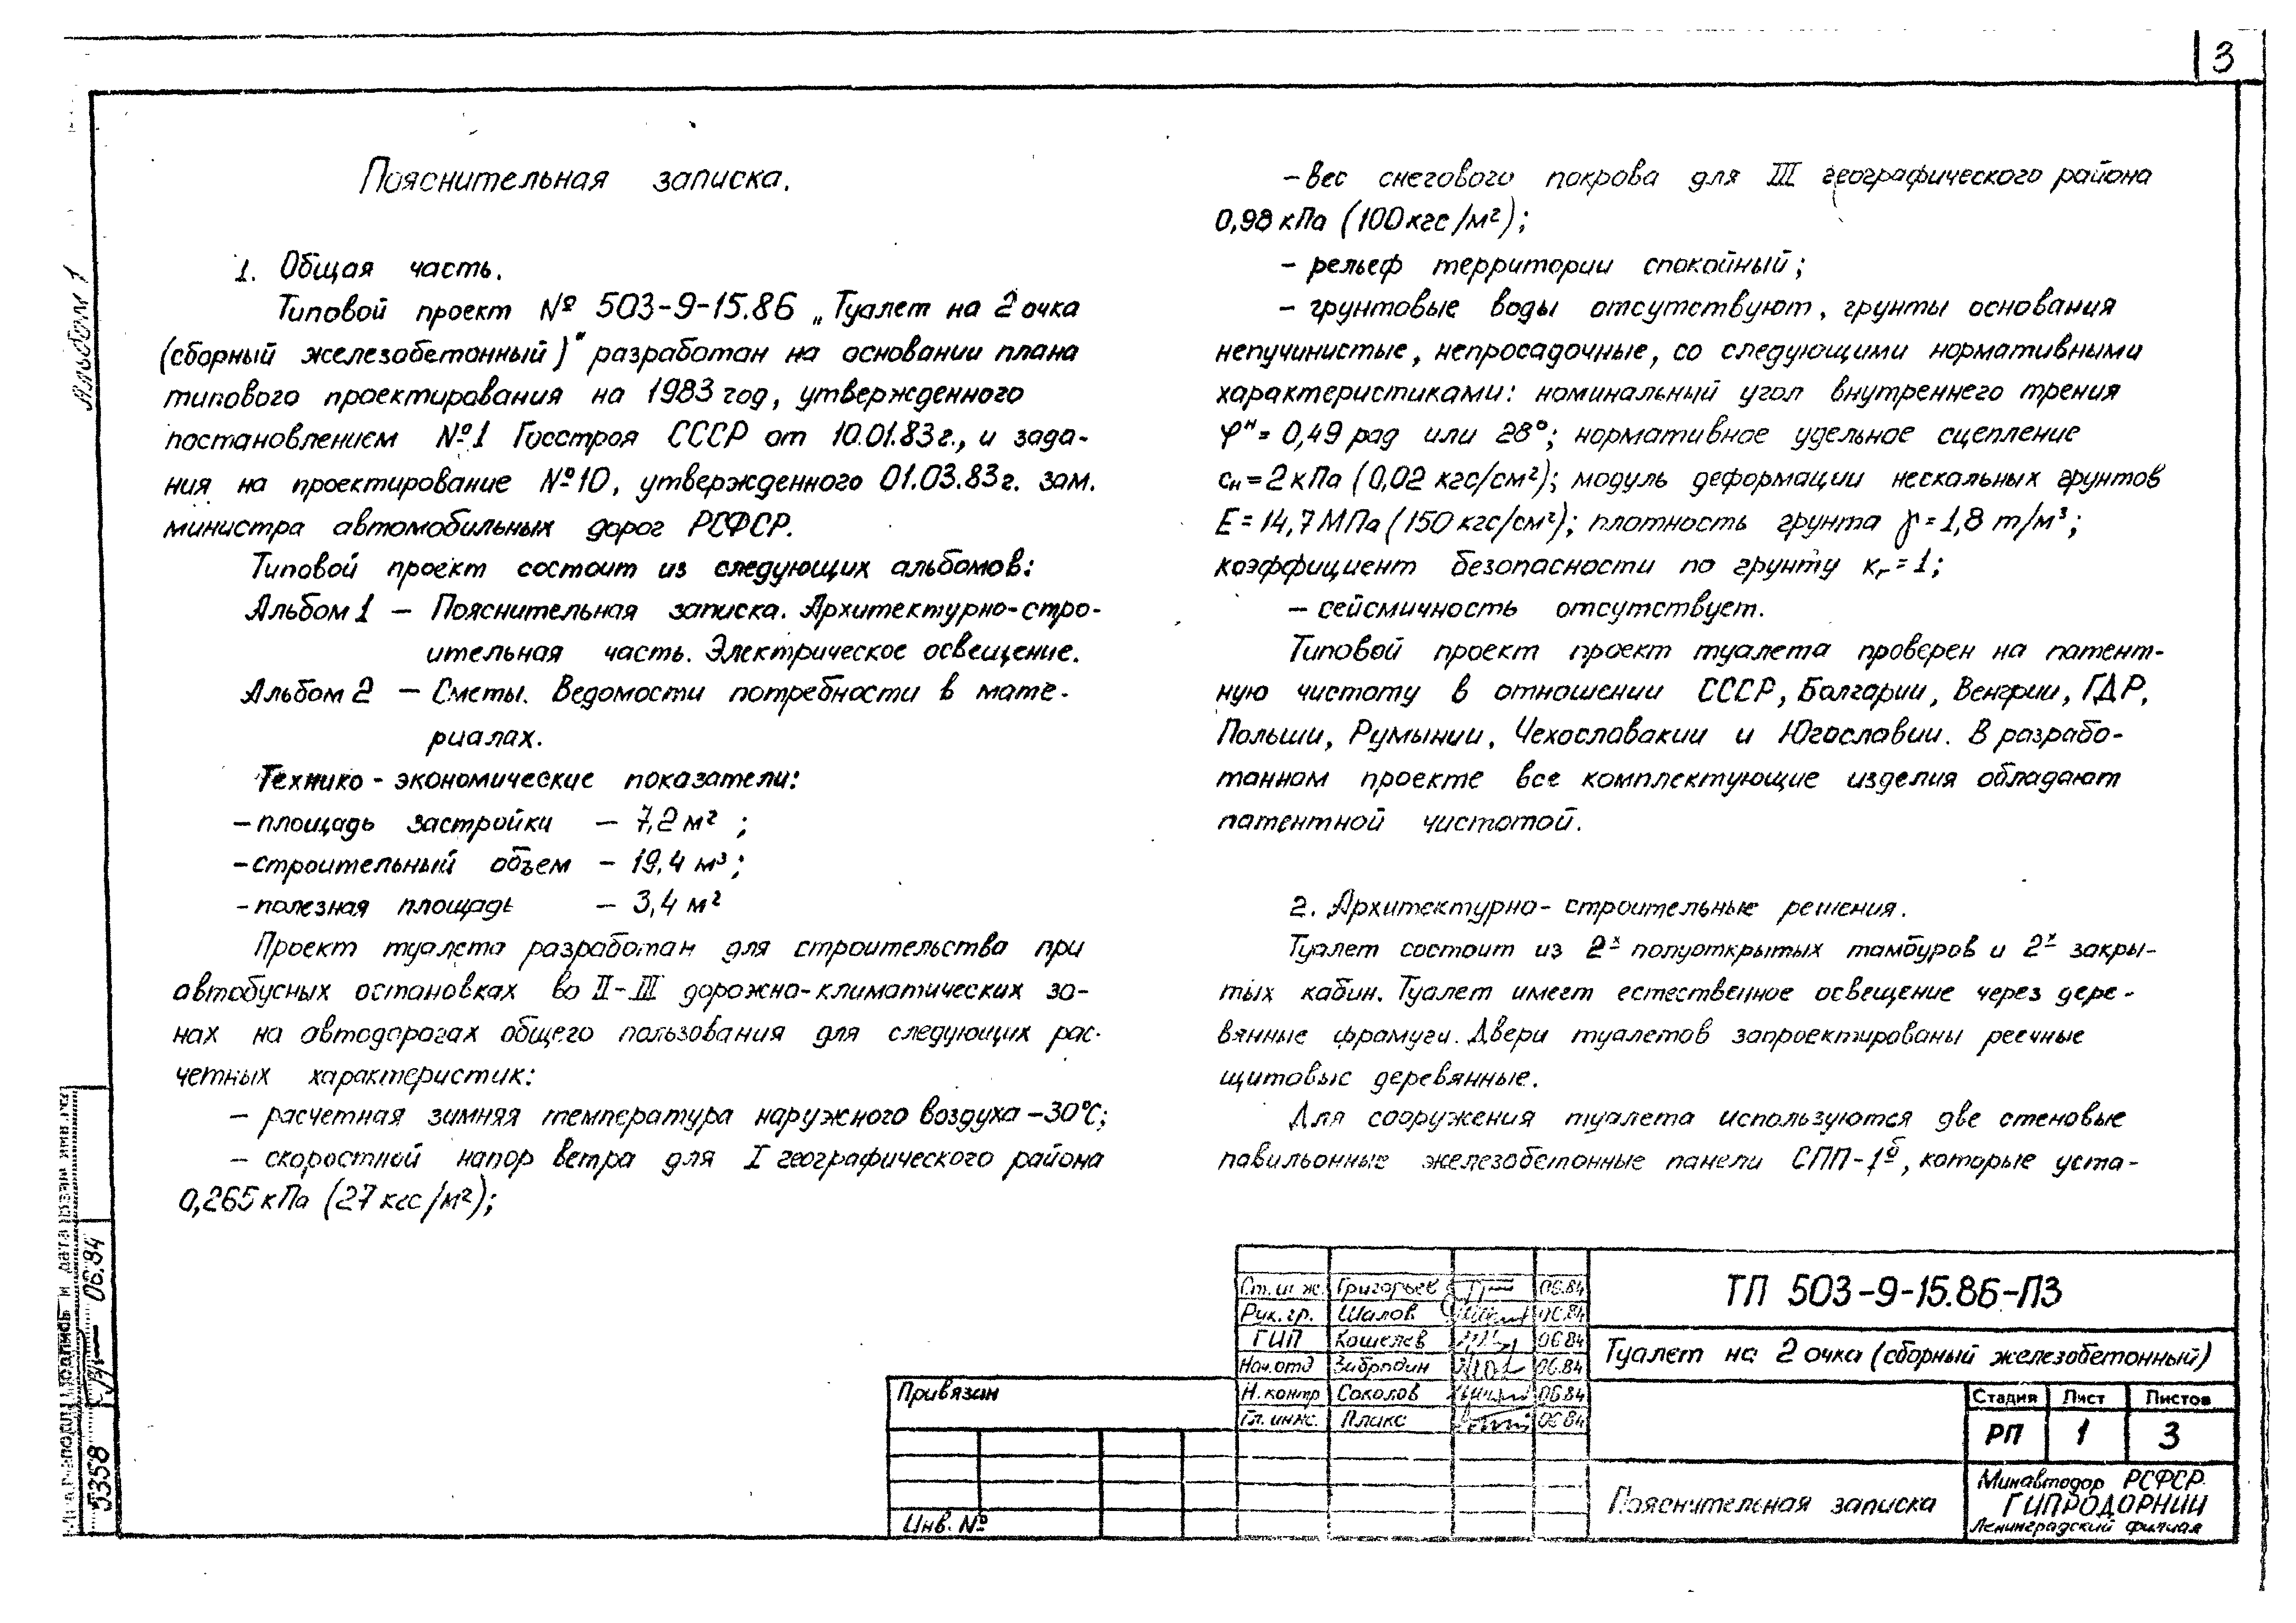 3
Альбом 1
Пояснительная записка.
1. Общая часть.
Типовой проект № 503-9-15.86 „Туалет на 2 очка
(сборный железобетонный)" разработан на основании плана
типового проектирования на 1983 год, утвержденного
постановлением №1 Госстроя СССР от 10.01.83г., и зада-
ния на проектирование №10, утвержденного 01.03.83г. зам.
министра автомобильных дорог РСФСР.
Типовой проект состоит из следующих альбомов:
Альбом 1 — Пояснительная записка. Архитектурно-стро-
ительная часть. Электрическое освещение.
Альбом 2 — Сметы. Ведомости потребности в мате-
риалах.
Технико-экономические показатели:
-площадь застройки — 7,2 м²;
-строительный объем — 19,4 м³;
-полезная площадь — 3,4 м²
Проект туалета разработан для строительства при
автобусных остановках во II-III дорожно-климатических зо-
нах на автодорогах общего пользования для следующих рас-
четных характеристик:
— расчетная зимняя температура наружного воздуха -30°С;
— скоростной напор ветра для I географического района
0,265 кПа (27 кгс/м²);
-вес снегового покрова для III географического района
0,98 кПа (100 кгс/м²);
- рельеф территории спокойный;
- грунтовые воды отсутствуют, грунты основания
непучинистые, непросадочные, со следующими нормативными
характеристиками: номинальный угол внутреннего трения
φн = 0,49 рад или 28°; нормативное удельное сцепление
сн = 2 кПа (0,02 кгс/см²); модуль деформации нескальных грунтов
Е = 14,7 МПа (150 кгс/см²); плотность грунта γ = 1,8 т/м³;
коэффициент безопасности по грунту кг = 1;
- сейсмичность отсутствует.
Типовой проект проект туалета проверен на патент-
ную чистоту в отношении СССР, Болгарии, Венгрии, ГДР,
Польши, Румынии, Чехословакии и Югославии. В разрабо-
танном проекте все комплектующие изделия обладают
патентной чистотой.
2. Архитектурно-строительные решения.
Туалет состоит из 2х полуоткрытых тамбуров и 2х закры-
тых кабин. Туалет имеет естественное освещение через дере-
вянные фрамуги. Двери туалетов запроектированы реечные
щитовые деревянные.
Для сооружения туалета используются две стеновые
павильонные железобетонные панели СПП-1б, которые уста-
Ст. инж. Григорьев 06.84
Рук. гр. Шалов 06.84
ГИП Кошелев 06.84
Нач. отд 06.84
Н. контр Соколов 06.84
Гл. инж. Плакс 06.84
ТП 503-9-15.86-ПЗ
Туалет на 2 очка (сборный железобетонный)
Стадия Лист Листов
РП 1 3
Пояснительная записка
Минавтодор РСФСР
ГИПРОДОРНИИ
Ленинградский филиал
Привязан
Инв. №
06.84
5358